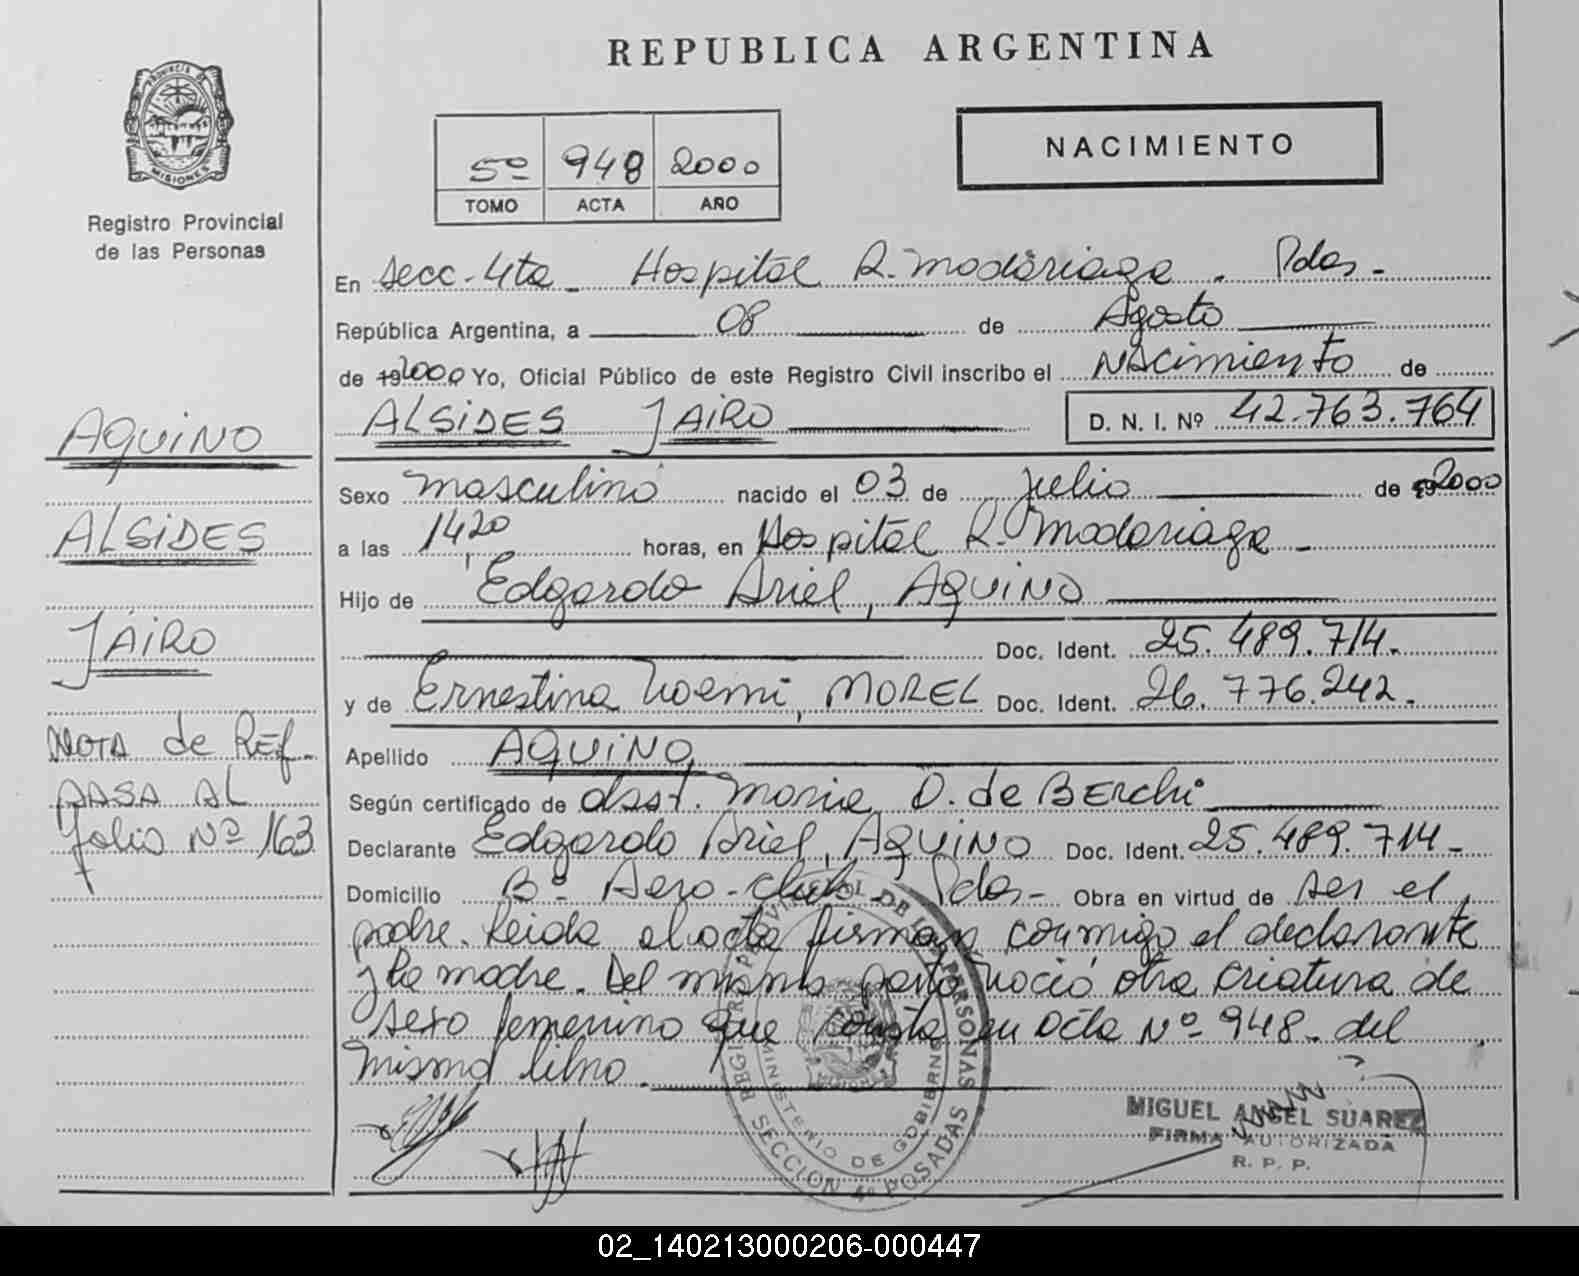 REPUBLICA ARGENTINA
PROVINCIA DE
MISIONES
Registro Provincial
de las Personas
5º 948 2000
TOMO ACTA AÑO
NACIMIENTO
En Secc. 4ta - Hospital R. Madariaga. Pdas.-
República Argentina, a 08 de Agosto
de 19 2000 Yo, Oficial Público de este Registro Civil inscribo el Nacimiento de
ALSIDES JAIRO D. N. I. Nº 42.763.764
Sexo masculino nacido el 03 de julio de 19 2000
a las 14,20 horas, en Hospital R. Madariaga -
Hijo de Edgardo Ariel, AQUINO
Doc. Ident. 25.489.714.
y de Ernestina Noemi, MOREL Doc. Ident. 26.776.242.
Apellido AQUINO
Según certificado de obst. Maria D. de BERchi
Declarante Edgardo Ariel, AQUINO Doc. Ident. 25.489.714-
Domicilio Bº Aero-club Pdas- Obra en virtud de ser el
padre. Leida el acta firman conmigo el declarante
y la madre. Del mismo parto nació otra criatura de
sexo femenino que consta en acta Nº 948. del
mismo libro.
AQUINO
ALSIDES
JAIRO
NOTA de REf.
PASA AL
folio Nº 163
REGISTRO PROVINCIAL DE LAS PERSONAS
MINISTERIO DE GOBIERNO
SECCION 4º POSADAS
MIGUEL ANGEL SUAREZ
FIRMA AUTORIZADA
R. P. P.
02_140213000206-000447